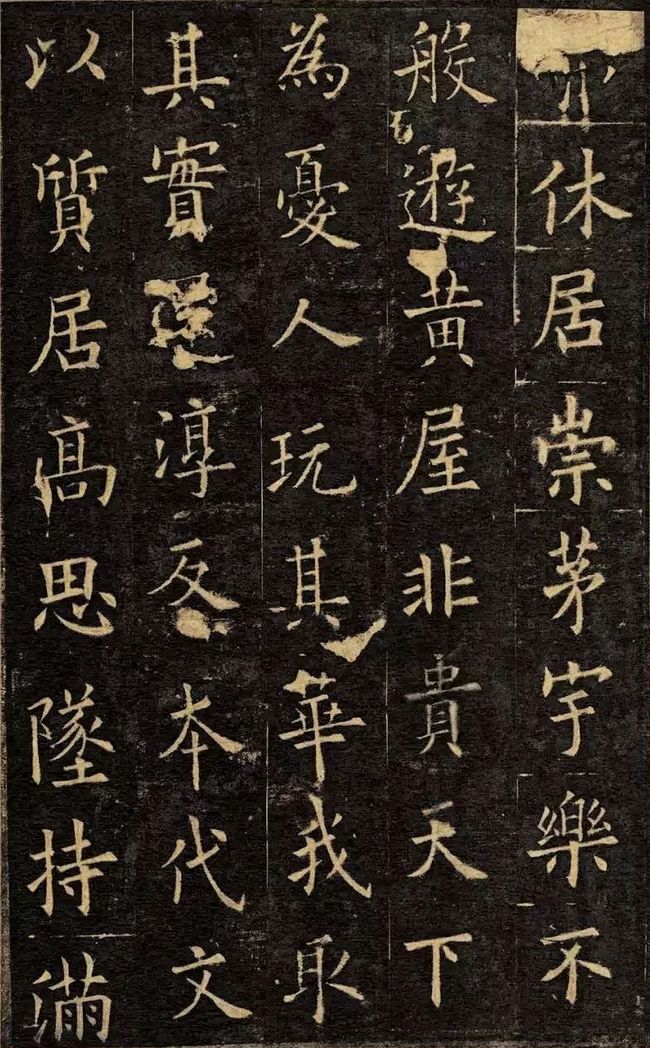 休居崇茅宇樂不
般遊黄屋非貴天下
為憂人玩其華我取
其實還淳反本代文
以質居髙思墜持滿